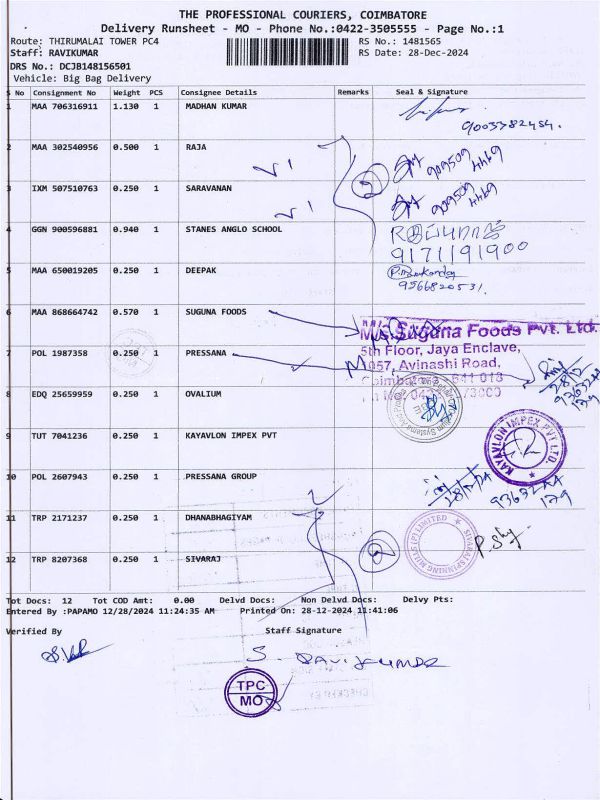 THE PROFESSIONAL COURIERS, COIMBATORE
Delivery Runsheet - MO - Phone No.:0422-3505555 - Page No.:1
Route: THIRUMALAI TOWER PC4 RS No.: 1481565
Staff: RAVIKUMAR RS Date: 28-Dec-2024
DRS No.: DCJB148156501
Vehicle: Big Bag Delivery
S No Consignment No Weight PCS Consignee Details Remarks Seal & Signature
1 MAA 706316911 1.130 1 MADHAN KUMAR
9003382454.
2 MAA 302540956 0.500 1 RAJA
909509
4469
3 IXM 507510763 0.250 1 SARAVANAN
909509
4469
4 GGN 900596881 0.940 1 STANES ANGLO SCHOOL
9171191900
5 MAA 650019205 0.250 1 DEEPAK
9566820531.
6 MAA 868664742 0.570 1 SUGUNA FOODS
M/s.Suguna Foods Pvt. Ltd.
5th Floor, Jaya Enclave,
7 POL 1987358 0.250 1 PRESSANA
1057, Avinashi Road,
641 018
28/12
179
8 EDQ 25659959 0.250 1 OVALIUM
9 TUT 7041236 0.250 1 KAYAVLON IMPEX PVT
KAYAVLON IMPEX PVT LTD.
10 POL 2607943 0.250 1 PRESSANA GROUP
179
11 TRP 2171237 0.250 1 DHANABHAGIYAM
2
SIVARAJ SPINNING MILLS (P) LIMITED
12 TRP 8207368 0.250 1 SIVARAJ
Tot Docs: 12 Tot COD Amt: 0.00 Delvd Docs: Non Delvd Docs: Delvy Pts:
Entered By :PAPAMO 12/28/2024 11:24:35 AM Printed On: 28-12-2024 11:41:06
Verified By Staff Signature
S. RAVIKUMAR
TPC
MO